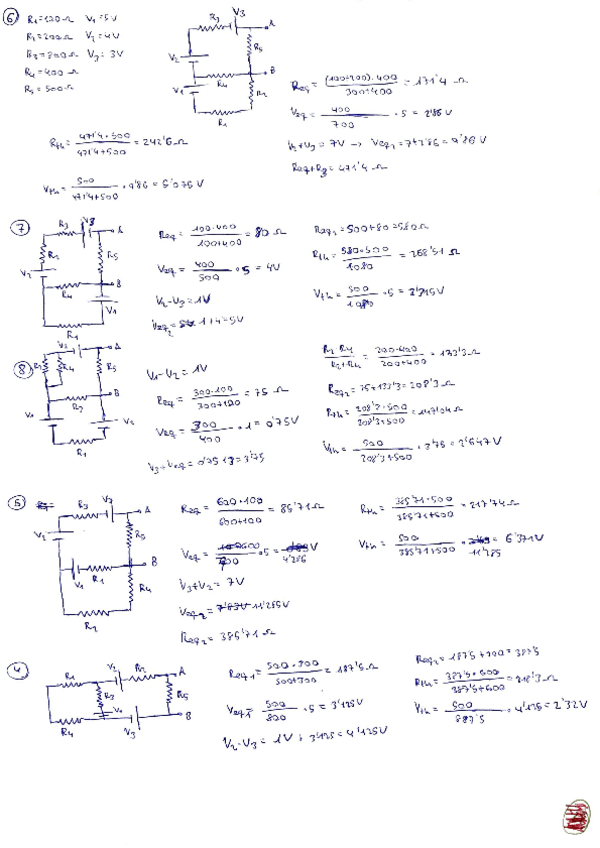 6
R1=120Ω V1=5V
R2=200Ω V2=4V
R3=300Ω V3=3V
R4=400Ω
R5=500Ω
Req = (100+200)·400 / 300+400 = 171'4 Ω
Veq = 400 / 700 · 5 = 2'86V
V2+V3=7V → Veq2=7+2'86=9'86V
Req+R3=471'4Ω
Rth = 471'4·500 / 471'4+500 = 242'6Ω
Vth = 500 / 471'4+500 · 9'86 = 5'075V
7
Req = 100·400 / 100+400 = 80Ω
Veq = 400 / 500 · 5 = 4V
V2-V3=1V
Veq2= 1+4=5V
Req2=500+80=580Ω
Rth = 580·500 / 1080 = 268'51Ω
Vth = 500 / 1080 · 5 =
8
V1-V2=1V
Req = 300·100 / 300+100 = 75Ω
Veq = 300 / 400 · 1 = 0'75V
V3+Veq=0'75+3=3'75
R2·R4 / R2+R4 = 200·400 / 200+400 = 133'3Ω
Req2=75+133'3=208'3Ω
Rth = 208'3·500 / 208'3+500 = 147'04Ω
Vth = 500 / 208'3+500 · 3'75 = 2'647V
5
Req = 600·100 / 600+100 = 85'71Ω
Veq = · 5 = 4'286 V
V3+V2=7V
Veq2= 11'285V
Req2=385'71Ω
Rth = 385'71·500 / 385'71+500 = 217'74Ω
Vth = 500 / 385'71+500 · 11'285 = 6'371V
4
Req1 = 500·300 / 500+300 = 187'5Ω
Veq1 = 500 / 800 · 5 = 3'125V
V2-V3=1V+3'125=4'125V
Req2=187'5+200=387'5
Rth = 387'5·500 / 387'5+500 = 218'3Ω
Vth = 500 / 887'5 · 4'125 = 2'32V